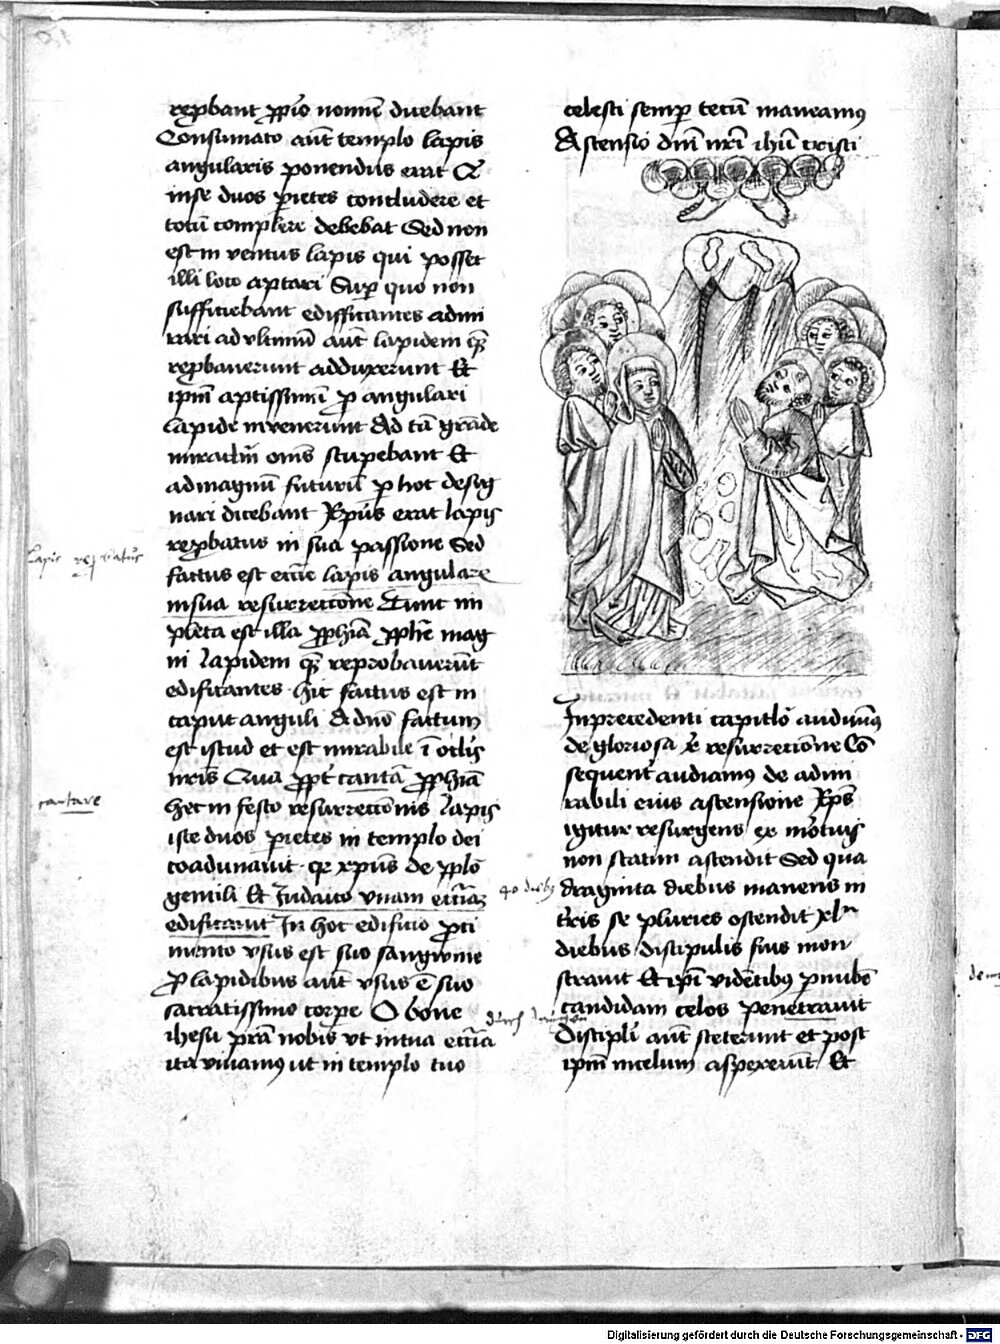 rep̄bant pp̄io nomīe dicebant
Consumato aūt templo lapis
angularis ponendus erat Q
inse duos pietes concludere et
totū complere debebat Sed non
est in ventus lapis qui posset
illi loco aptari Suꝑ quo non
sufficiebant edifficantes admi
rari ad vltimū aūt lapidem qē
rep̄baverunt adduxerunt Et
ipm̄ aptissimū ꝓ angulari
lapide invenerunt Ad tā grāde
miraclm̄ om̄s stupebant Et
admagnū futurū ꝑ hoc desig
nari dicebant Xp̄us erat lapis
rep̄batus in sua passione Sed
factus est eccīe lapis angulare
insua resurrectione Tunc im
pleta est illa ꝓphīa ꝓphē mag
ni Lapidem qē reprobaverūt
edificantes hic factus est in
caput anguli A dn̄o factum
est istud et est mirabile ī oclīs
nr̄is Qua ꝓpt cantā ꝓphīā
hec in festo resurrectionis Lapis
iste duos pietes in templo dei
coadunavit qr xp̄us de pplō
gentili Et Iudaico vnam eccīaz
edificavit In hoc edificio ꝓ ci
mento vsus est suo sangwine
Ꝓ lapidibus aūt vsus ē suo
sacratissimo corꝑe O bone
ihesu p̄sta nobis vt intua eccīa
ita vivamus ut in templo tuo
lapis reprobatus
cantare
celesti semꝑ tecū maneamus
Ascensio dn̄i nr̄i ihū cristi
In precedenti capitlo audivimus
de gloriosa xp̄i resurrectione Cō
sequent audiamus de admi
rabili eius ascensione Xp̄s
igitur resurgens ex mortuis
non statim ascendit Sed qua
draginta diebus manens in
terris se pluries ostendit xl
diebus discipulis suis mon
stravit Et ipīs videntibus ꝑ nubē
candidam celos penetravit
Discipli aūt steterunt et post
ipm̄ incelum aspexerunt Et
40 diebus
durch